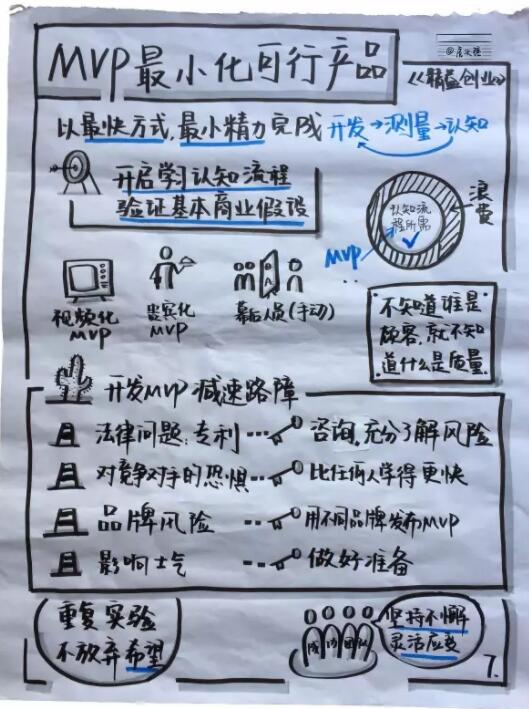 MVP最小化可行产品
《精益创业》
以最快方式，最小精力完成 开发→测量→认知
开启学习认知流程
验证基本商业假设
认知流
程所需
浪费
MVP
视频化
MVP
贵宾化
MVP
幕后人员(手动)
不知道谁是
顾客，就不知
道什么是质量.
开发MVP减速路障
法律问题：专利
咨询，充分了解风险
对竞争对手的恐惧
比任何人学得更快
品牌风险
用不同品牌发布MVP
影响士气
做好准备
重复实验
不放弃希望
成功团队
坚持不懈
灵活应变
7.